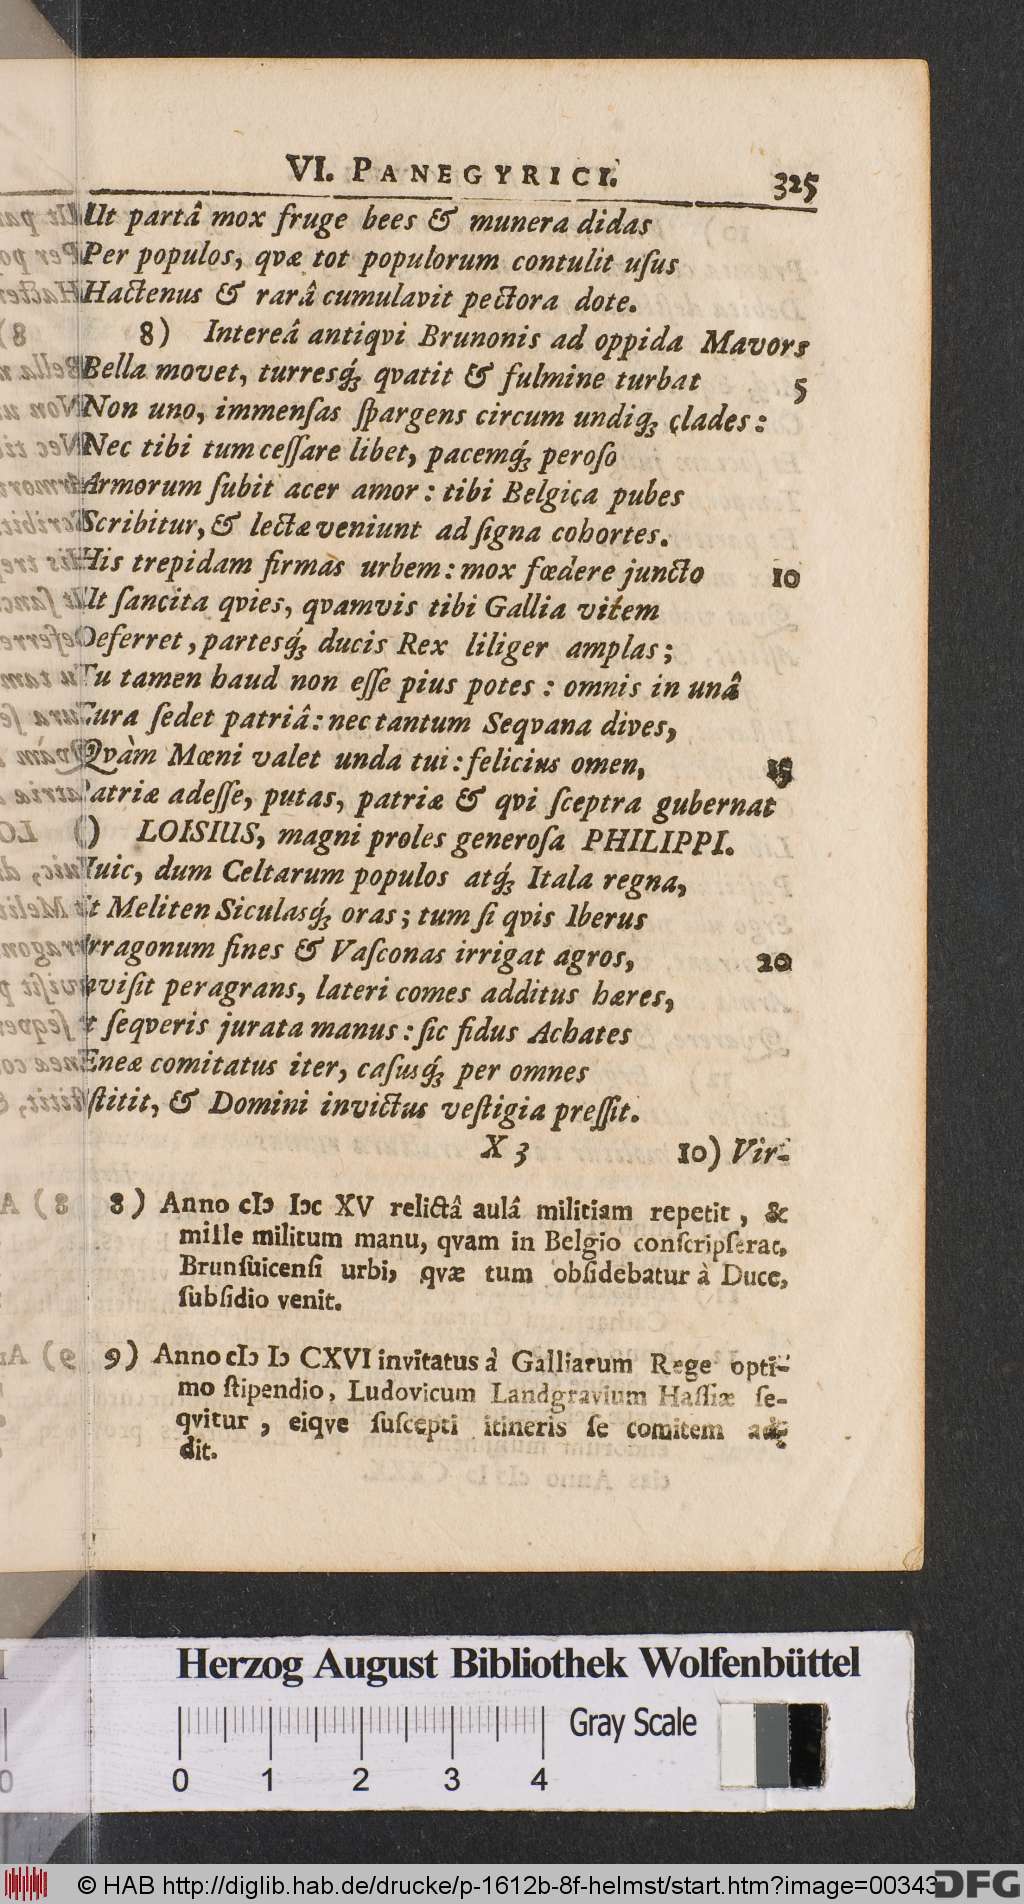 VI. PANEGYRICI. 325
Ut partâ mox fruge bees & munera didas
Per populos, qvæ tot populorum contulit uſus
Hactenus & rarâ cumulavit pectora dote.
8) Intereâ antiqvi Brunonis ad oppida Mavors
Bella movet, turresq́; qvatit & fulmine turbat 5
Non uno, immenſas ſpargens circum undiq; clades:
Nec tibi tum ceſſare libet, pacemq́; peroſo
Armorum ſubit acer amor: tibi Belgica pubes
Scribitur, & lectæ veniunt ad ſigna cohortes.
His trepidam firmas urbem: mox fœdere juncto 10
Ut ſancita qvies, qvamvis tibi Gallia vitem
Deferret, partesq́; ducis Rex liliger amplas;
Tu tamen haud non eſſe pius potes: omnis in unâ
Cura ſedet patriâ: nec tantum Seqvana dives,
Qvàm Mœni valet unda tui: felicius omen, 15
Patriæ adeſſe, putas, patriæ & qvi ſceptra gubernat
() LOISIUS, magni proles generoſa PHILIPPI.
Huic, dum Celtarum populos atq́; Itala regna,
Et Meliten Siculasq́; oras; tum ſi qvis Iberus
Arragonum fines & Vaſconas irrigat agros, 20
viſit peragrans, lateri comes additus hæres,
t ſeqveris jurata manus: ſic fidus Achates
Æneæ comitatus iter, caſusq́; per omnes
ſtitit, & Domini invictus veſtigia preſſit.
X 3 10) Vir-
8) Anno cIɔ Iɔc XV relictâ aulâ militiam repetit, &
mille militum manu, qvam in Belgio conſcripſerat,
Brunſuicenſi urbi, qvæ tum obſidebatur à Duce,
ſubſidio venit.
9) Anno cIɔ Iɔ CXVI invitatus à Galliarum Rege opti-
mo ſtipendio, Ludovicum Landgravium Haſſiæ ſe-
qvitur, eiqve ſuſcepti itineris ſe comitem ad-
dit.
Herzog August Bibliothek Wolfenbüttel
Gray Scale
0 1 2 3 4
© HAB http://diglib.hab.de/drucke/p-1612b-8f-helmst/start.htm?image=00343
DFG